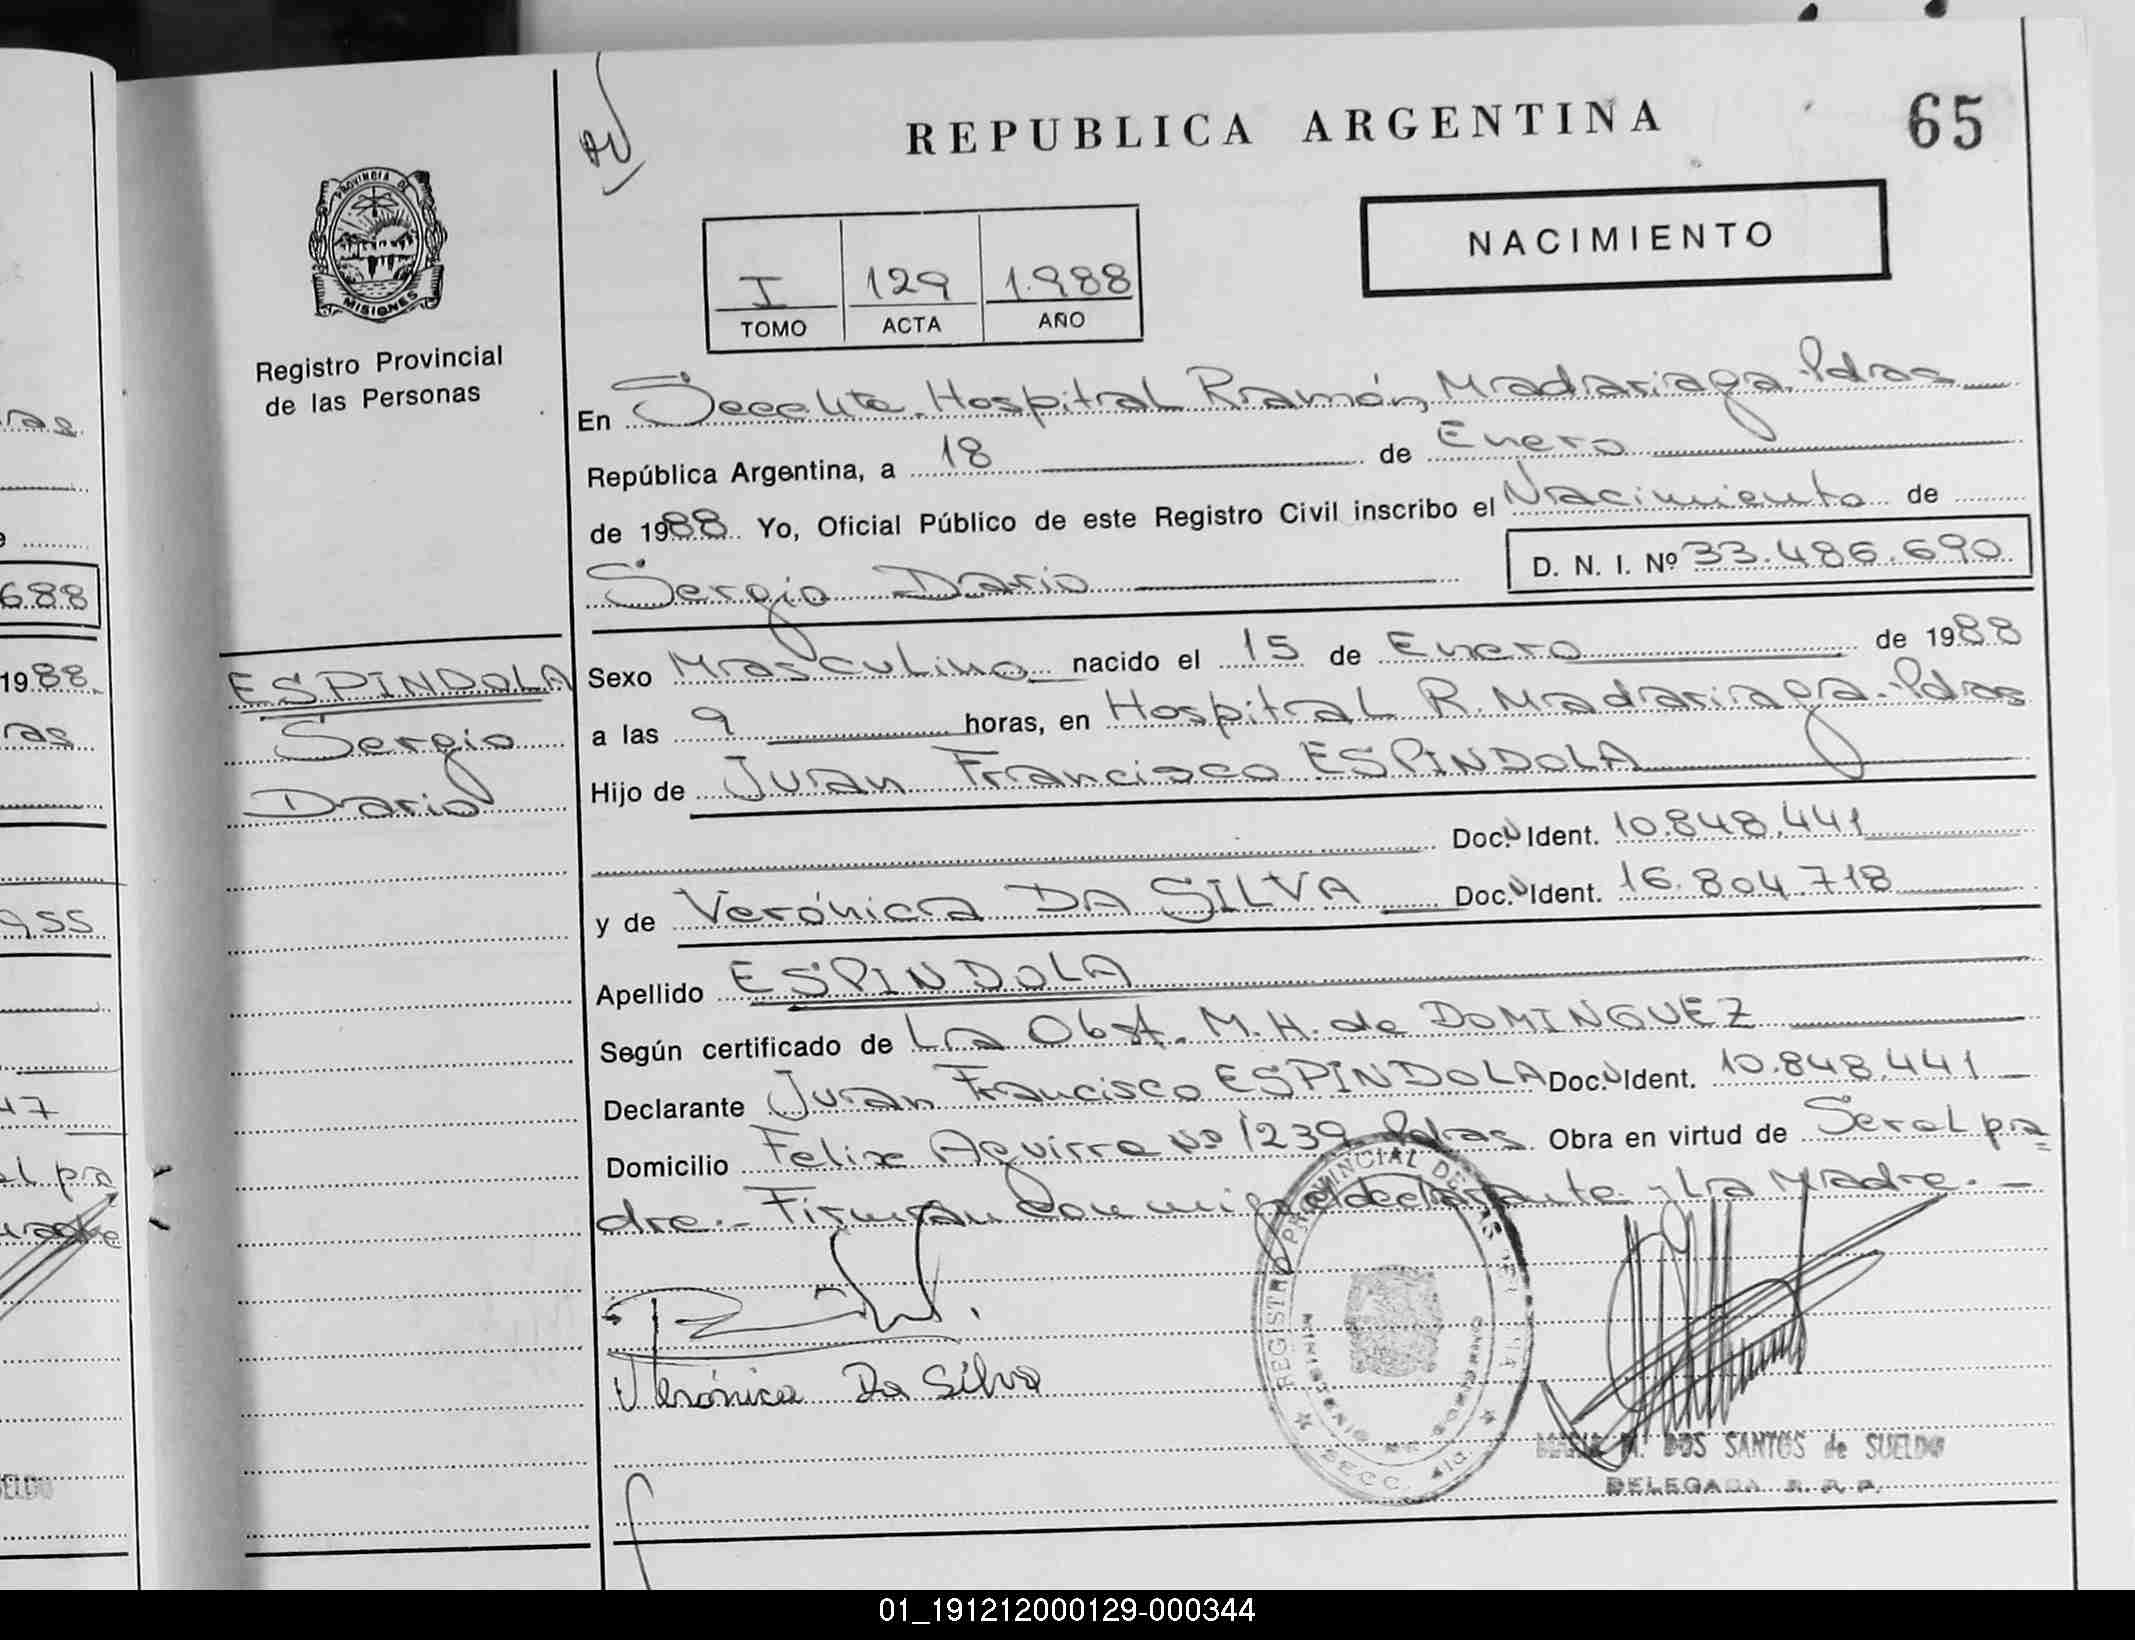 REPUBLICA ARGENTINA
65
NACIMIENTO
I 129 1.988
TOMO ACTA AÑO
PROVINCIA DE
MISIONES
Registro Provincial
de las Personas
En Hospital Ramón Madariaga. Pdas
República Argentina, a 18 de Enero
de 1988. Yo, Oficial Público de este Registro Civil inscribo el Nacimiento de
Sergio Dario D. N. I. Nº 33.486.690
ESPINDOLA
Sergio
Dario
Sexo Masculino nacido el 15 de Enero de 1988
a las 9 horas, en Hospital R. Madariaga - Pdas
Hijo de Juan Francisco ESPINDOLA
Doc. Ident. 10.848.441
y de Verónica DA SILVA Doc. Ident. 16.804.718
Apellido ESPINDOLA
Según certificado de La Obst. M.H. de DOMINGUEZ
Declarante Juan Francisco ESPINDOLA Doc. Ident. 10.848.441
Domicilio Felix Aguirre Nº 1239 Pdas. Obra en virtud de Ser el pa=
dre.- Firman con migo el declarante y La Madre.-
Verónica Da Silva
REGISTRO PROVINCIAL DE LAS
MINISTERIO DE
SECC.
M. DOS SANTOS de SUELDO
DELEGADA R. P. P.
688
1988
955
47
el pa
01_191212000129-000344